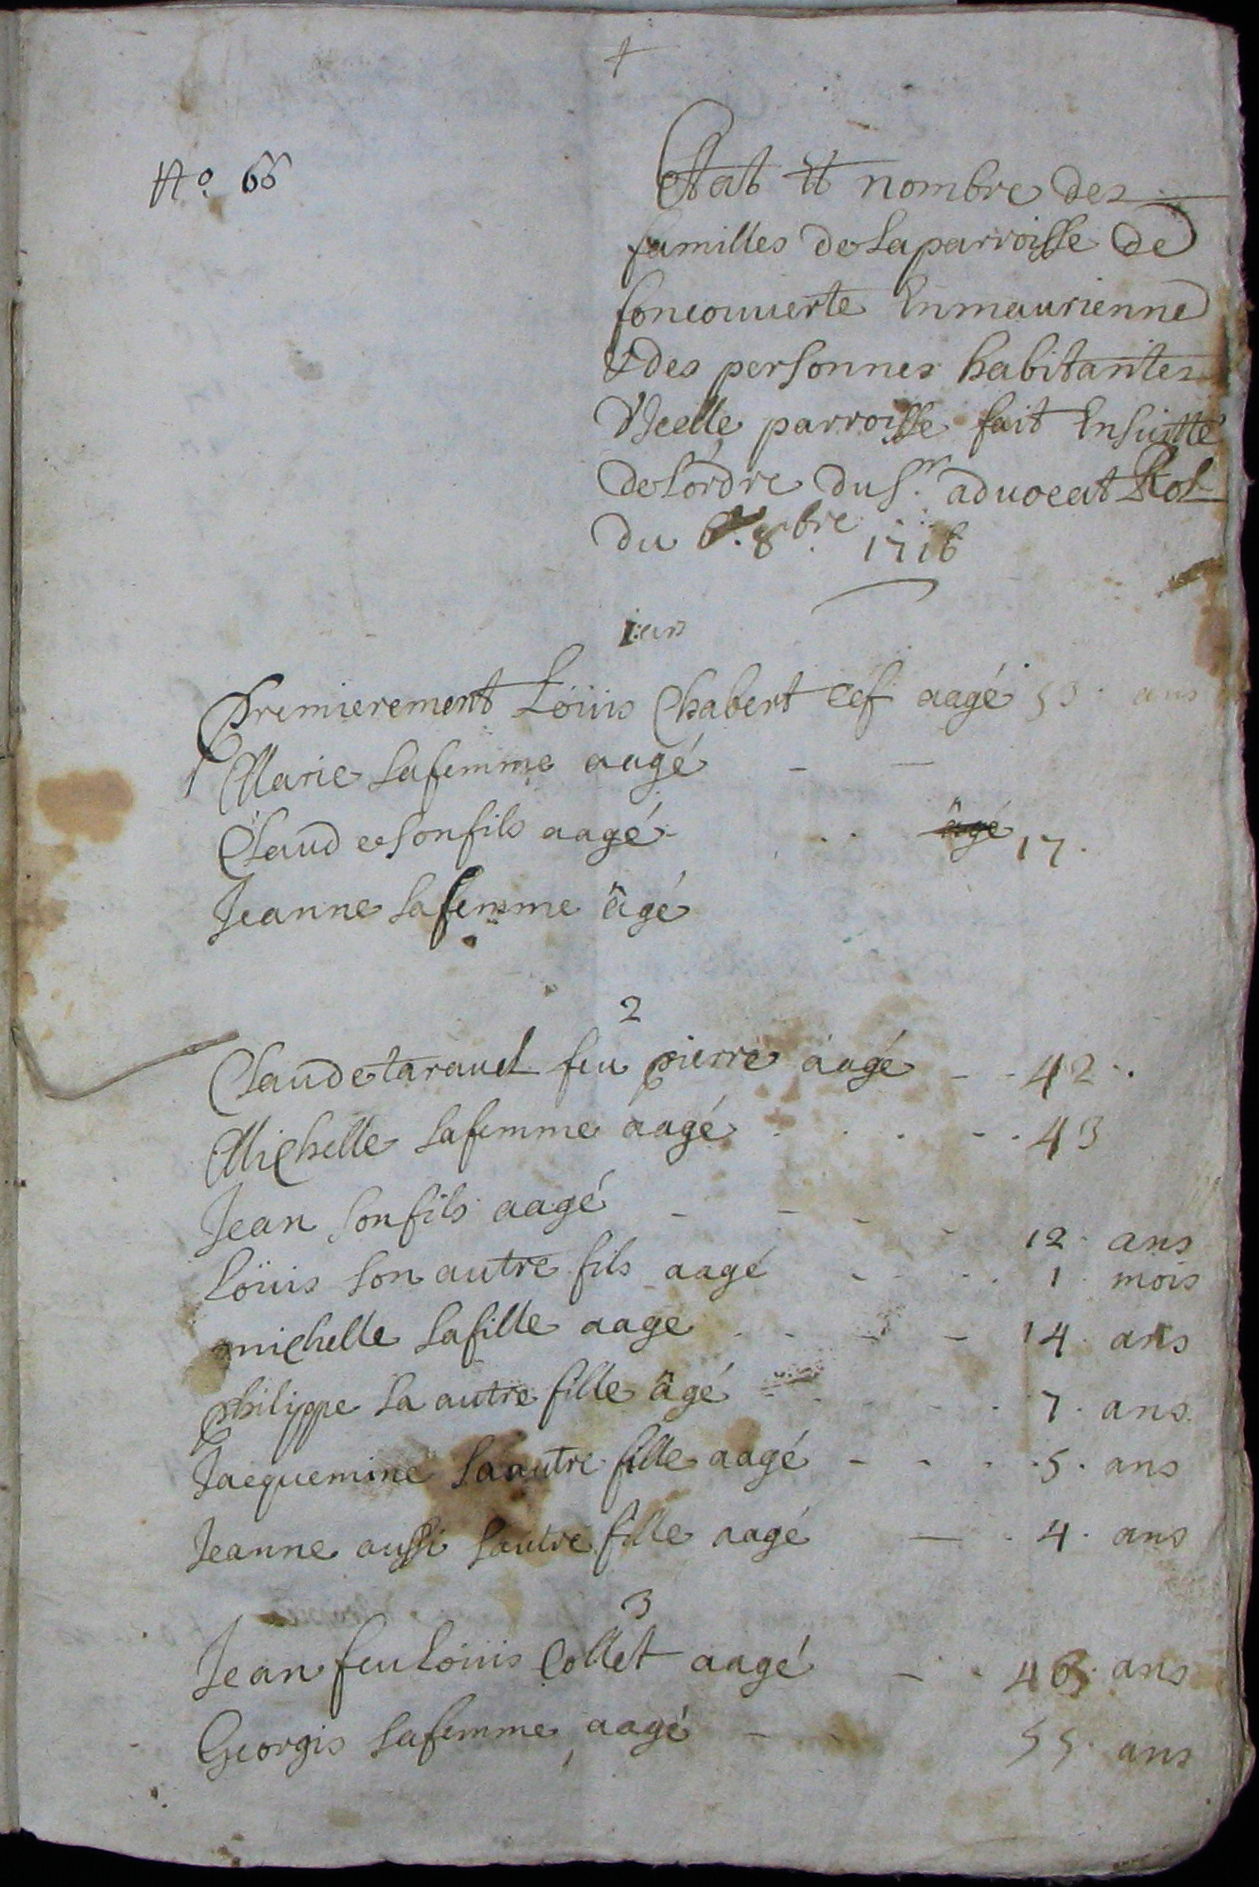 N.º 66
Etat et nombre des
familles de la parroisse de
foncouuerte En maurienne
& des personnes habitantes
d'Icelle parroisse fait Ensuitte
de l'ordre du S.r aduocat Rol
du 6. 8.bre 1716
Premierement Loüis Chabert aagé 53. ans
1 Marie sa femme aagé - -
Claude son fils aagé . . âgé 17.
Jeanne sa femme âgé
2
Claude tarauel feu pierre aagé - - 42.
Michelle sa femme aagé . . . - - . 43
Jean son fils aagé - - - - 12. ans
Loüis son autre fils aagé - - - . 1. mois
michelle sa fille aagé . . - - 14. ans
philippe sa autre fille âgé - - . 7. ans
Jacquemine sa autre fille aagé - - . . 5. ans
Jeanne aussi sautre fille aagé — . 4. ans
3
Jean feu Loüis Collet aagé - . ans
Georgis sa femme aagé - - 55. ans